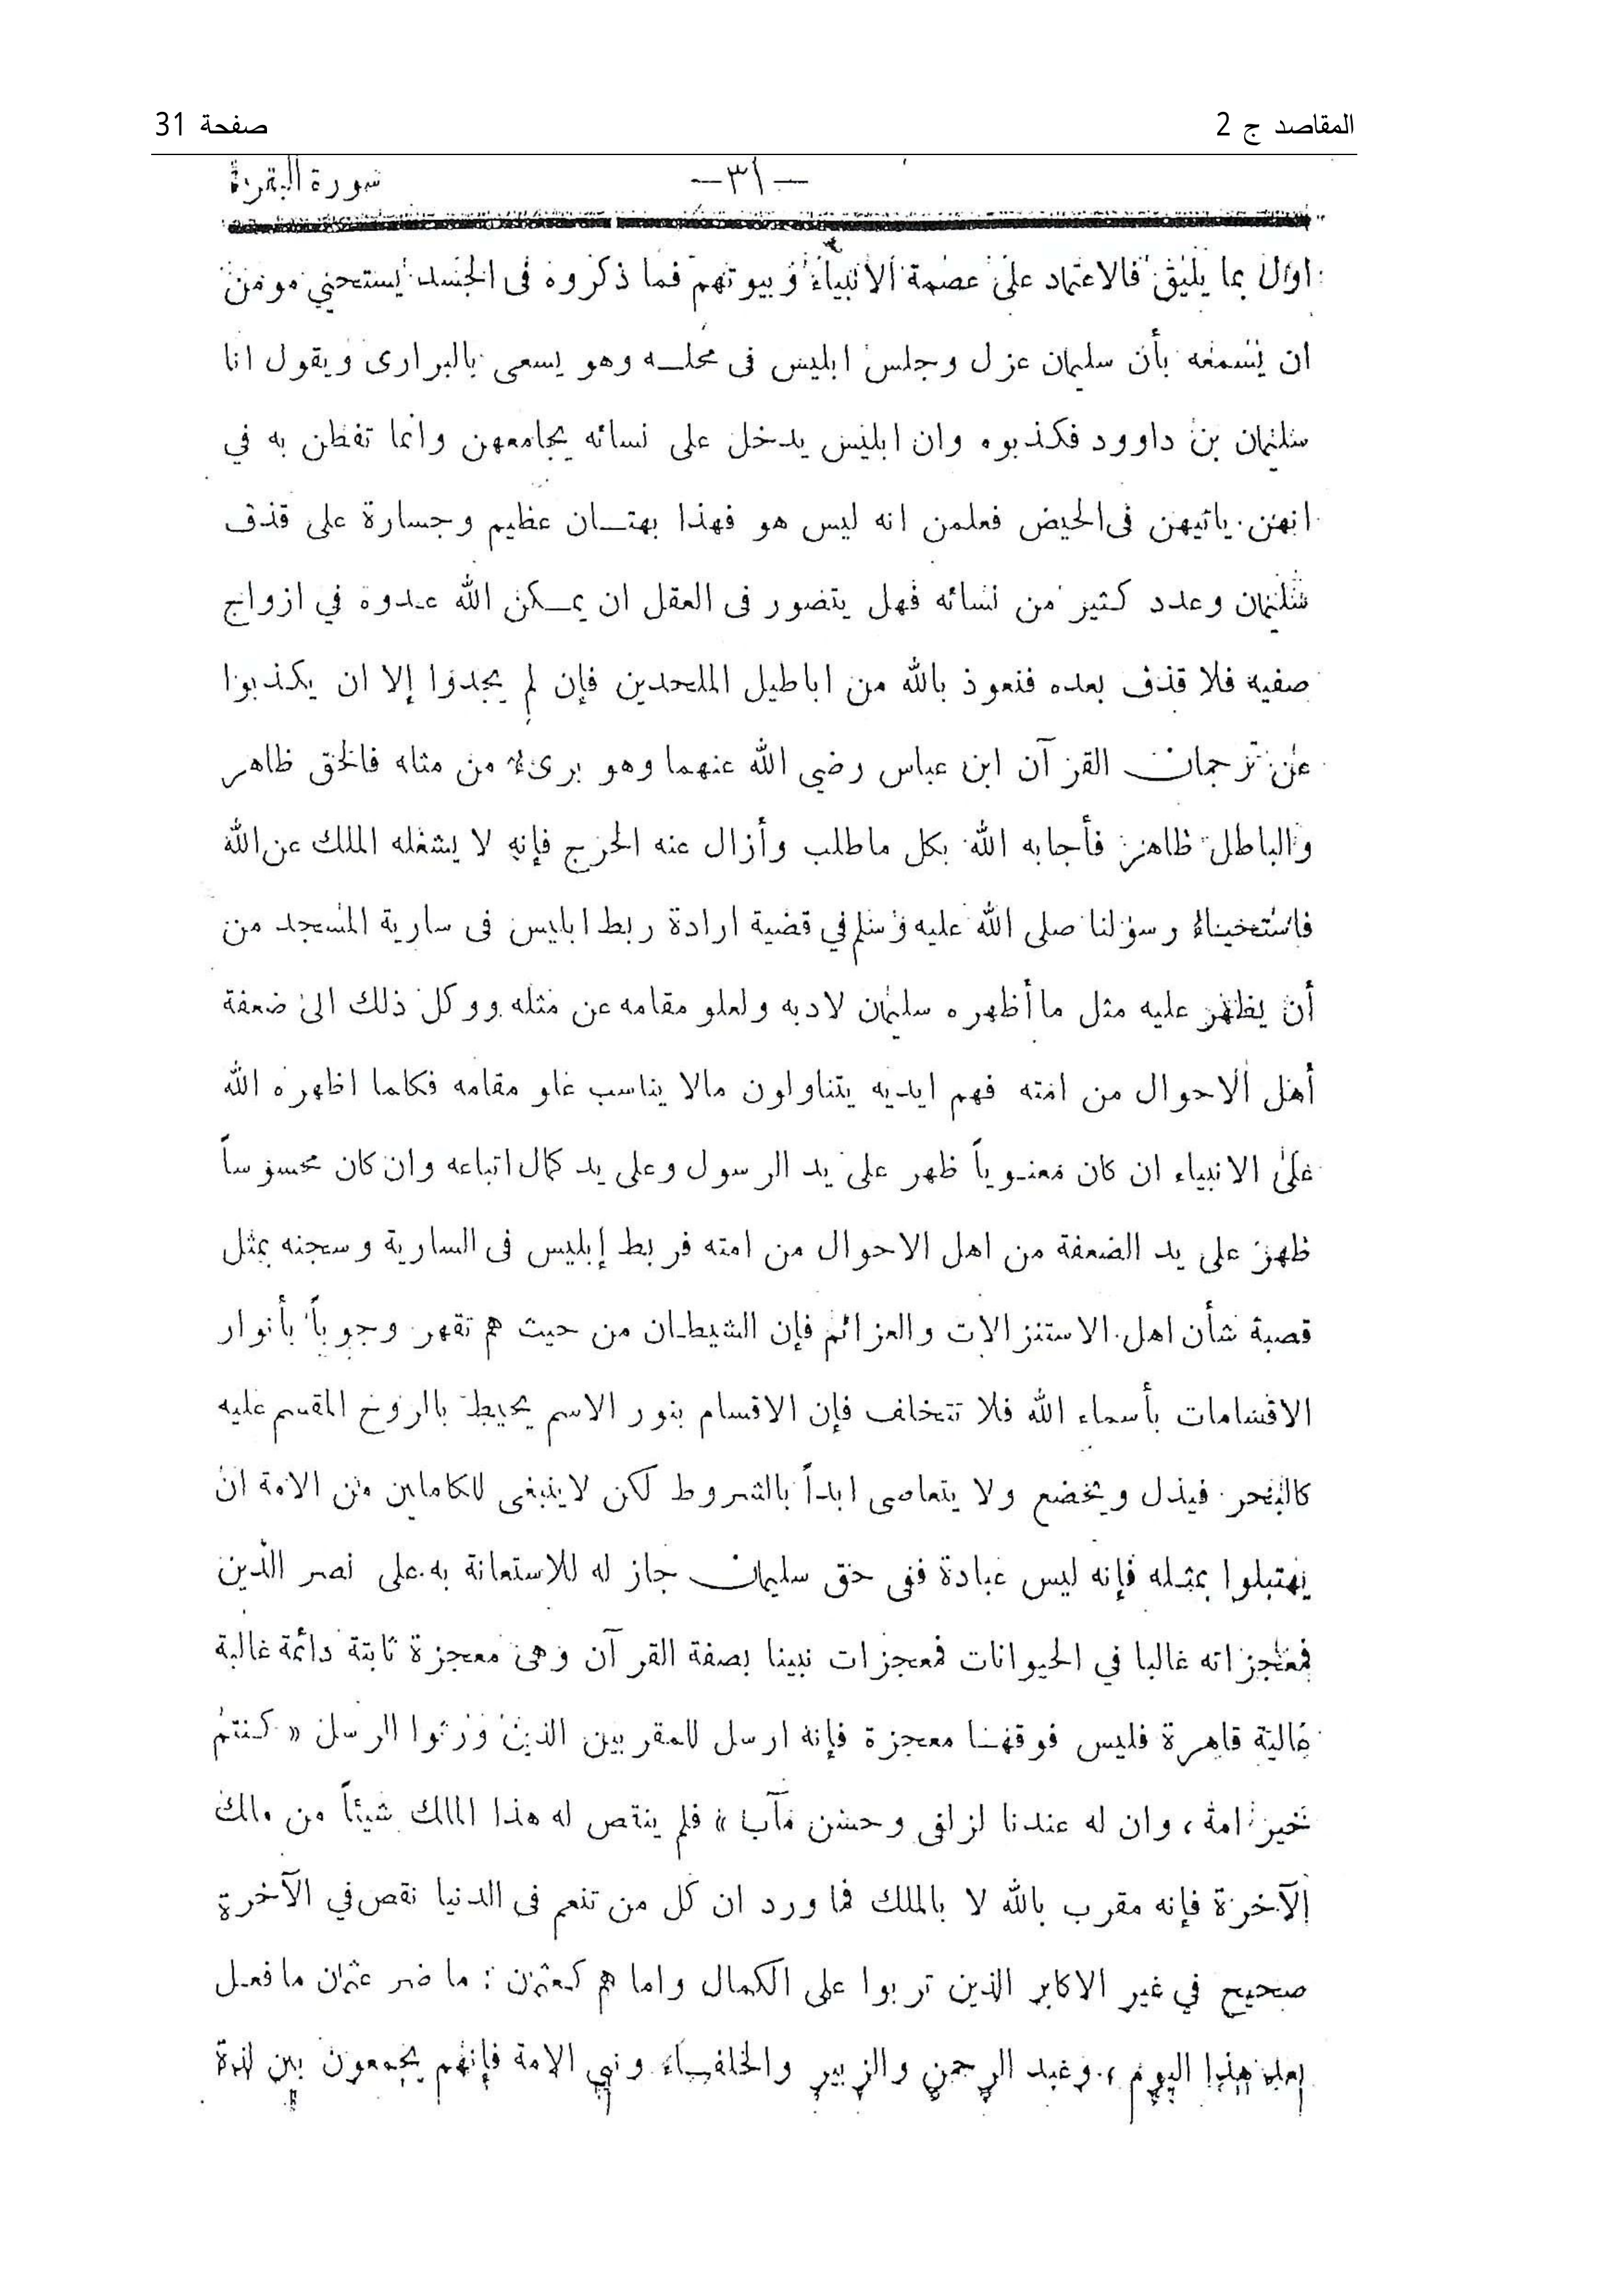 المقاصد ج 2
صفحة 31
سورة البقرة
—٣١—
اوّل بما يليق فالاعتماد على عصمة الانبياء وبيوتهم فما ذكروه فى الجسد يستحيي مومن
ان يسمعه بأن سليمان عزل وجلس ابليس فى محلــه وهو يسعى بالبرارى ويقول انا
سليمان بن داوود فكذبوه وان ابليس يدخل على نسائه يجامعهن وانما تفطن به في
انهن ياتيهن فى الحيض فعلمن انه ليس هو فهذا بهتــان عظيم وجسارة على قذف
سليمان وعدد كثير من نسائه فهل يتصور فى العقل ان يمــكن الله عـدوه في ازواج
صفيه فلا قذف بعده فنعوذ بالله من اباطيل الملحدين فإن لم يجدوا إلا ان يكذبوا
عن ترجمان القرآن ابن عباس رضي الله عنهما وهو برىء من مثله فالحق ظاهر
والباطل ظاهر فأجابه الله بكل ماطلب وأزال عنه الحرج فإنه لا يشغله الملك عن الله
فاستحياء رسولنا صلى الله عليه وسلم في قضية ارادة ربط ابليس فى سارية المسجد من
أن يظهر عليه مثل ما أظهره سليمان لادبه ولعلو مقامه عن مثله ووكل ذلك الى ضعفة
أهل الاحوال من امته فهم ايديه يتناولون مالا يناسب علو مقامه فكلما اظهره الله
على الانبياء ان كان معنـوياً ظهر على يد الرسول وعلى يد كمال اتباعه وان كان محسوساً
ظهر على يد الضعفة من اهل الاحوال من امته فربط إبليس فى السارية وسجنه بمثل
قصبة شأن اهل الاستنزالات والعزائم فإن الشيطـان من حيث هم تقهر وجوباً بأنوار
الاقسامات بأسماء الله فلا تتخلف فإن الاقسام بنور الاسم يحيط بالروح المقسم عليه
كالبحر فيذل ويخضع ولا يتعاصى ابداً بالشروط لكن لا ينبغى للكاملين من الامة ان
يهتبلوا بمثـله فإنه ليس عبادة ففى حق سليمان جاز له للاستعانة به على نصر الدين
فمعجزاته غالبا في الحيوانات فمعجزات نبينا بصفة القرآن وهى معجزة ثابتة دائمة غالبة
عالية قاهرة فليس فوقهـا معجزة فإنه ارسل للمقربين الذين ورثوا الرسل « كنتم
خير امة ، وان له عندنا لزلفى وحسن مآب » فلم ينقص له هذا الملك شيئاً من ملك
الآخرة فإنه مقرب بالله لا بالملك فما ورد ان كل من تنعم فى الدنيا نقص في الآخرة
صحيح في غير الاكابر الذين تربوا على الكمال واما هم كـعثمن : ما ضر عثمان ما فعـل
بعد هذا اليوم ، وعبد الرحمن والزبير والخلفـاء ونبي الامة فإنهم يجمعون بين لذة